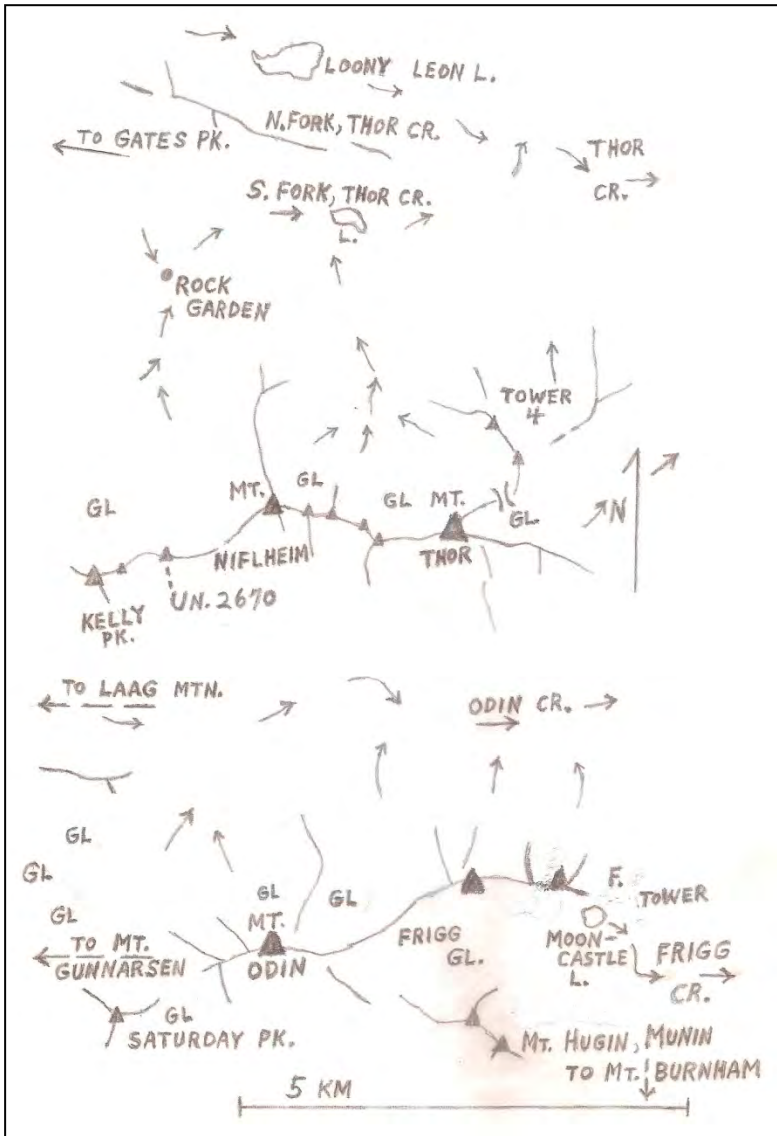 LOONY LEON L.
N. FORK, THOR CR.
TO GATES PK.
THOR
CR.
S. FORK, THOR CR.
L.
ROCK
GARDEN
TOWER
4
GL
MT.
GL
GL
MT.
GL.
N
NIFLHEIM
THOR
UN. 2670
KELLY
PK.
TO LAAG MTN.
ODIN CR.
GL
GL
GL
GL
GL
MT.
ODIN
F.
TOWER
FRIGG
GL.
MOON-
CASTLE
L.
FRIGG
CR.
TO MT.
GUNNARSEN
GL
SATURDAY PK.
MT. HUGIN, MUNIN
TO MT. BURNHAM
5 KM